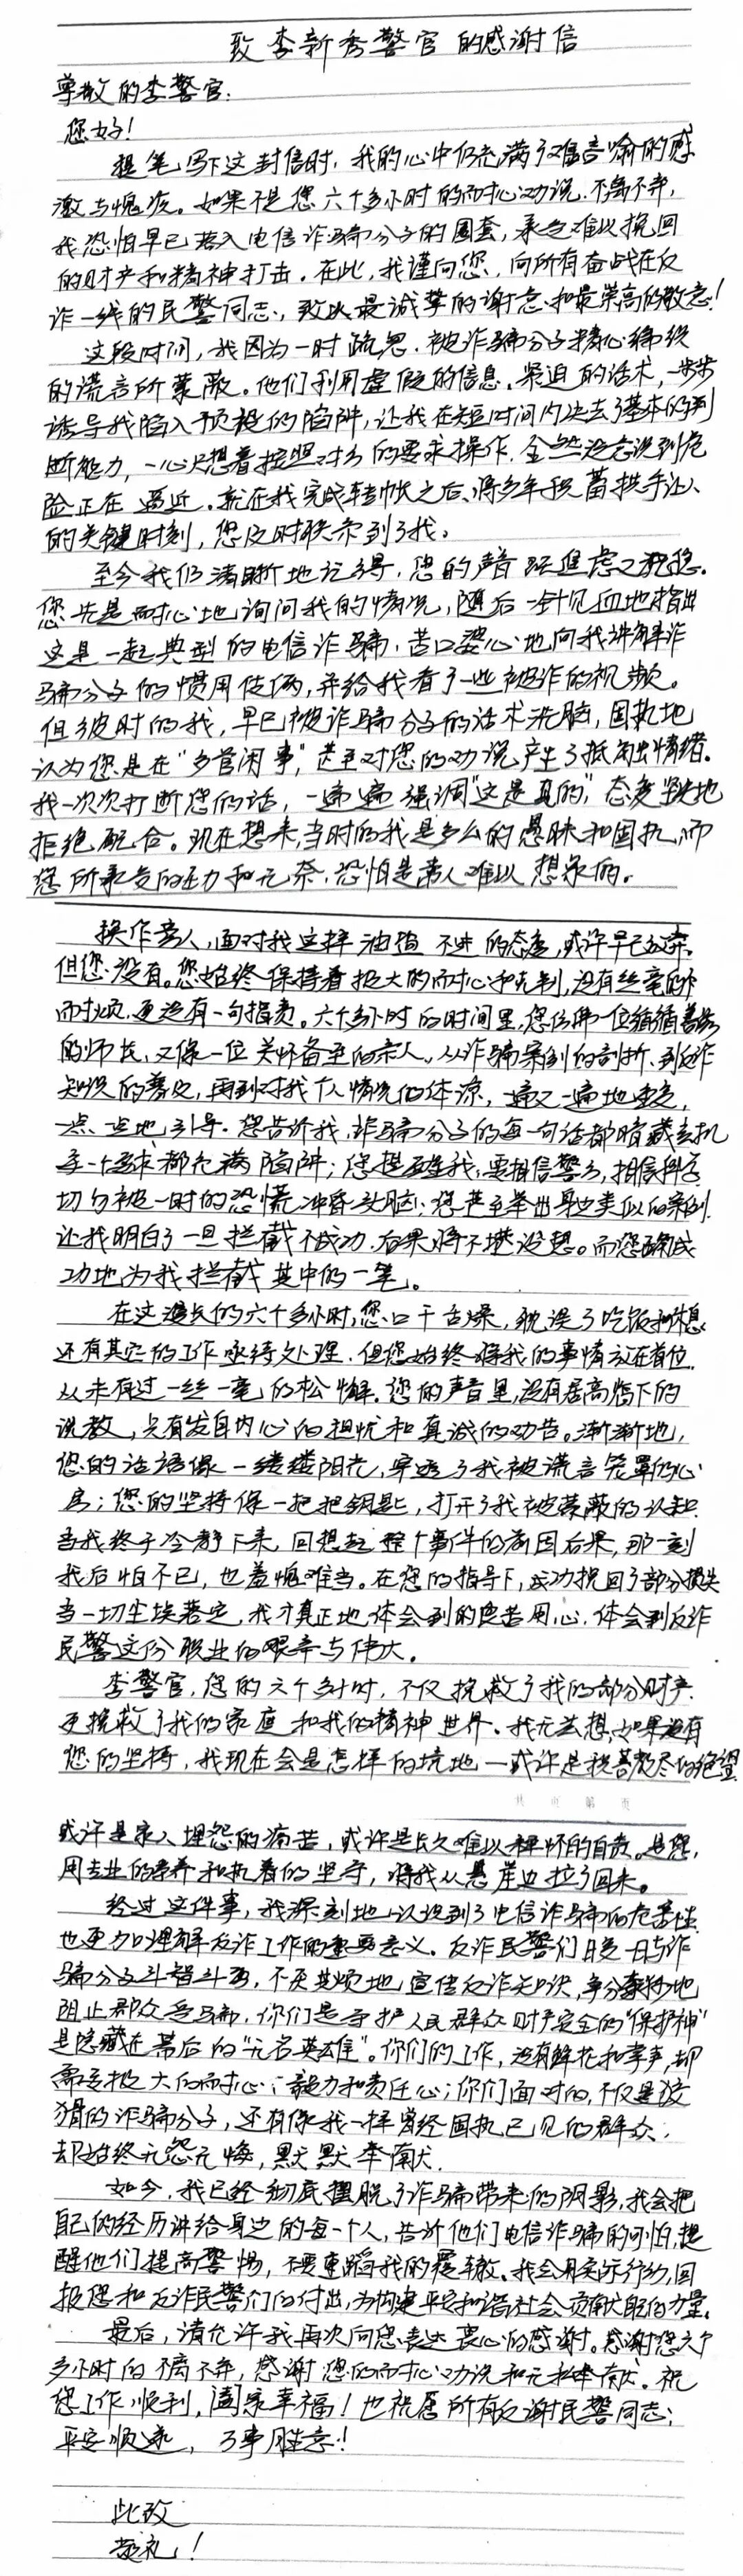 致李新秀警官的感谢信
尊敬的李警官：
您好！
提笔写下这封信时，我的心中仍充满了难言喻的感
激与愧疚。如果不是您六个多小时的耐心劝说、不离不弃，
我恐怕早已落入电信诈骗分子的圈套，承受难以挽回
的财产和精神打击。在此，我谨向您、向所有奋战在反
诈一线的民警同志，致以最诚挚的谢意和最崇高的敬意！
这段时间，我因为一时疏忽，被诈骗分子精心编织
的谎言所蒙蔽。他们利用虚假的信息、紧迫的话术，一步步
诱导我陷入预设的陷阱，让我在短时间内失去了基本的判
断能力，一心只想着按照对方的要求操作，全然没意识到危
险正在逼近。就在我完成转帐之后、将多年积蓄拱手让人
的关键时刻，您及时联系到了我。
至今我仍清晰地记得，您的声音既焦虑又沉稳。
您先是耐心地询问我的情况，随后一针见血地指出
这是一起典型的电信诈骗，苦口婆心地向我讲解诈
骗分子的惯用伎俩，并给我看了一些被诈的视频。
但彼时的我，早已被诈骗分子的话术洗脑，固执地
认为您是在“多管闲事”，甚至对您的劝说产生了抵触情绪。
我一次次打断您的话，一遍遍强调“这是真的”，态度坚决地
拒绝配合。现在想来，当时的我是多么的愚昧和固执，而
您所承受的压力和无奈，恐怕是常人难以想象的。
换作旁人，面对我这样油盐不进的态度，或许早已放弃。
但您没有。您始终保持着极大的耐心和克制，没有丝毫的不
耐烦，更没有一句指责。六个多小时的时间里，您仿佛一位循循善诱
的师长，又像一位关怀备至的亲人。从诈骗案例的剖析、到反诈
知识的普及，再到对我个人情况的体谅，一遍又一遍地重复，
一点一点地引导。您告诉我，诈骗分子的每一句话都暗藏玄机
每一个要求都充满陷阱；您提醒我，要相信警方，相信科学
切勿被一时的恐慌冲昏头脑；您甚至举出身边类似的案例，
让我明白了一旦拦截不成功，后果将不堪设想。而您确成
功地为我拦截其中的一笔。
在这漫长的六个多小时，您口干舌燥，耽误了吃饭和休息
还有其它的工作亟待处理，但您始终将我的事情放在首位，
从未有过一丝一毫的松懈。您的声音里，没有居高临下的
说教，只有发自内心的担忧和真诚的劝告。渐渐地，
您的话语像一缕缕阳光，穿透了我被谎言笼罩的心
房；您的坚持像一把把钥匙，打开了我被蒙蔽的认知。
当我终于冷静下来，回想起整个事件的前因后果，那一刻
我后怕不已，也羞愧难当。在您的指导下，成功挽回了部分损失
当一切尘埃落定，我才真正地体会到的良苦用心，体会到反诈
民警这份职业的艰辛与伟大。
李警官，您的六个多小时，不仅挽救了我的部分财产
更挽救了我的家庭和我的精神世界。我无法想，如果没有
您的坚持，我现在会是怎样的境地—或许是积蓄散尽的绝望
共 页 第 页
或许是家人埋怨的痛苦，或许是长久难以释怀的自责。是您，
用专业的素养和执着的坚守，将我从悬崖边拉了回来。
经过这件事，我深刻地认识到了电信诈骗的危害性
也更加理解反诈工作的重要意义。反诈民警们日复一日与诈
骗分子斗智斗勇，不厌其烦地宣传反诈知识，争分夺秒地
阻止群众受骗，你们是守护人民群众财产安全的“保护神”
是隐藏在幕后的“无名英雄”。你们的工作，没有鲜花和掌声，却
需要极大的耐心、毅力和责任心；你们面对的，不仅是狡
猾的诈骗分子，还有像我一样曾经固执己见的群众，
却始终无怨无悔，默默奉献。
如今，我已经彻底摆脱了诈骗带来的阴影，我会把
自己的经历讲给身边的每一个人，告诉他们电信诈骗的可怕，提
醒他们提高警惕，不要重蹈我的覆辙。我会用实际行动，回
报您和反诈民警们的付出，为构建平安和谐社会贡献自己的力量。
最后，请允许我再次向您表达衷心的感谢。感谢您六个
多小时的不离不弃，感谢您的耐心劝说和无私奉献。祝
您工作顺利，阖家幸福！也祝愿所有反诈民警同志：
平安顺遂，万事胜意！
此致
敬礼！